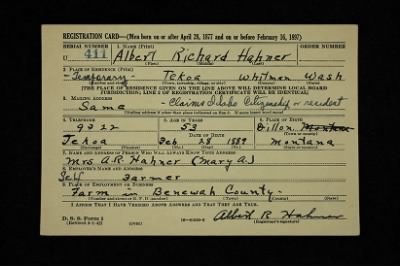 REGISTRATION CARD—(Men born on or after April 28, 1877 and on or before February 16, 1897)
SERIAL NUMBER 1. NAME (Print) ORDER NUMBER
U 411 Albert Richard Hahner
2. PLACE OF RESIDENCE (Print)
-Temporary- Tekoa Whitman Wash
[THE PLACE OF RESIDENCE GIVEN ON THE LINE ABOVE WILL DETERMINE LOCAL BOARD
JURISDICTION; LINE 2 OF REGISTRATION CERTIFICATE WILL BE IDENTICAL]
3. MAILING ADDRESS
Same - Claims Idaho Citizenship or resident
[Mailing address if other than place indicated on line 2. If same insert word same]
4. TELEPHONE 5. AGE IN YEARS 6. PLACE OF BIRTH
9322 53 Dillon
DATE OF BIRTH
Tekoa Feb 28 1889 Montana
7. NAME AND ADDRESS OF PERSON WHO WILL ALWAYS KNOW YOUR ADDRESS
Mrs A.R. Hahner (Mary A.)
8. EMPLOYER'S NAME AND ADDRESS
Self Farmer
9. PLACE OF EMPLOYMENT OR BUSINESS
Farm in Benewah County-
I AFFIRM THAT I HAVE VERIFIED ABOVE ANSWERS AND THAT THEY ARE TRUE.
D. S. S. Form 1
Albert R. Hahner
(Registrant's signature)